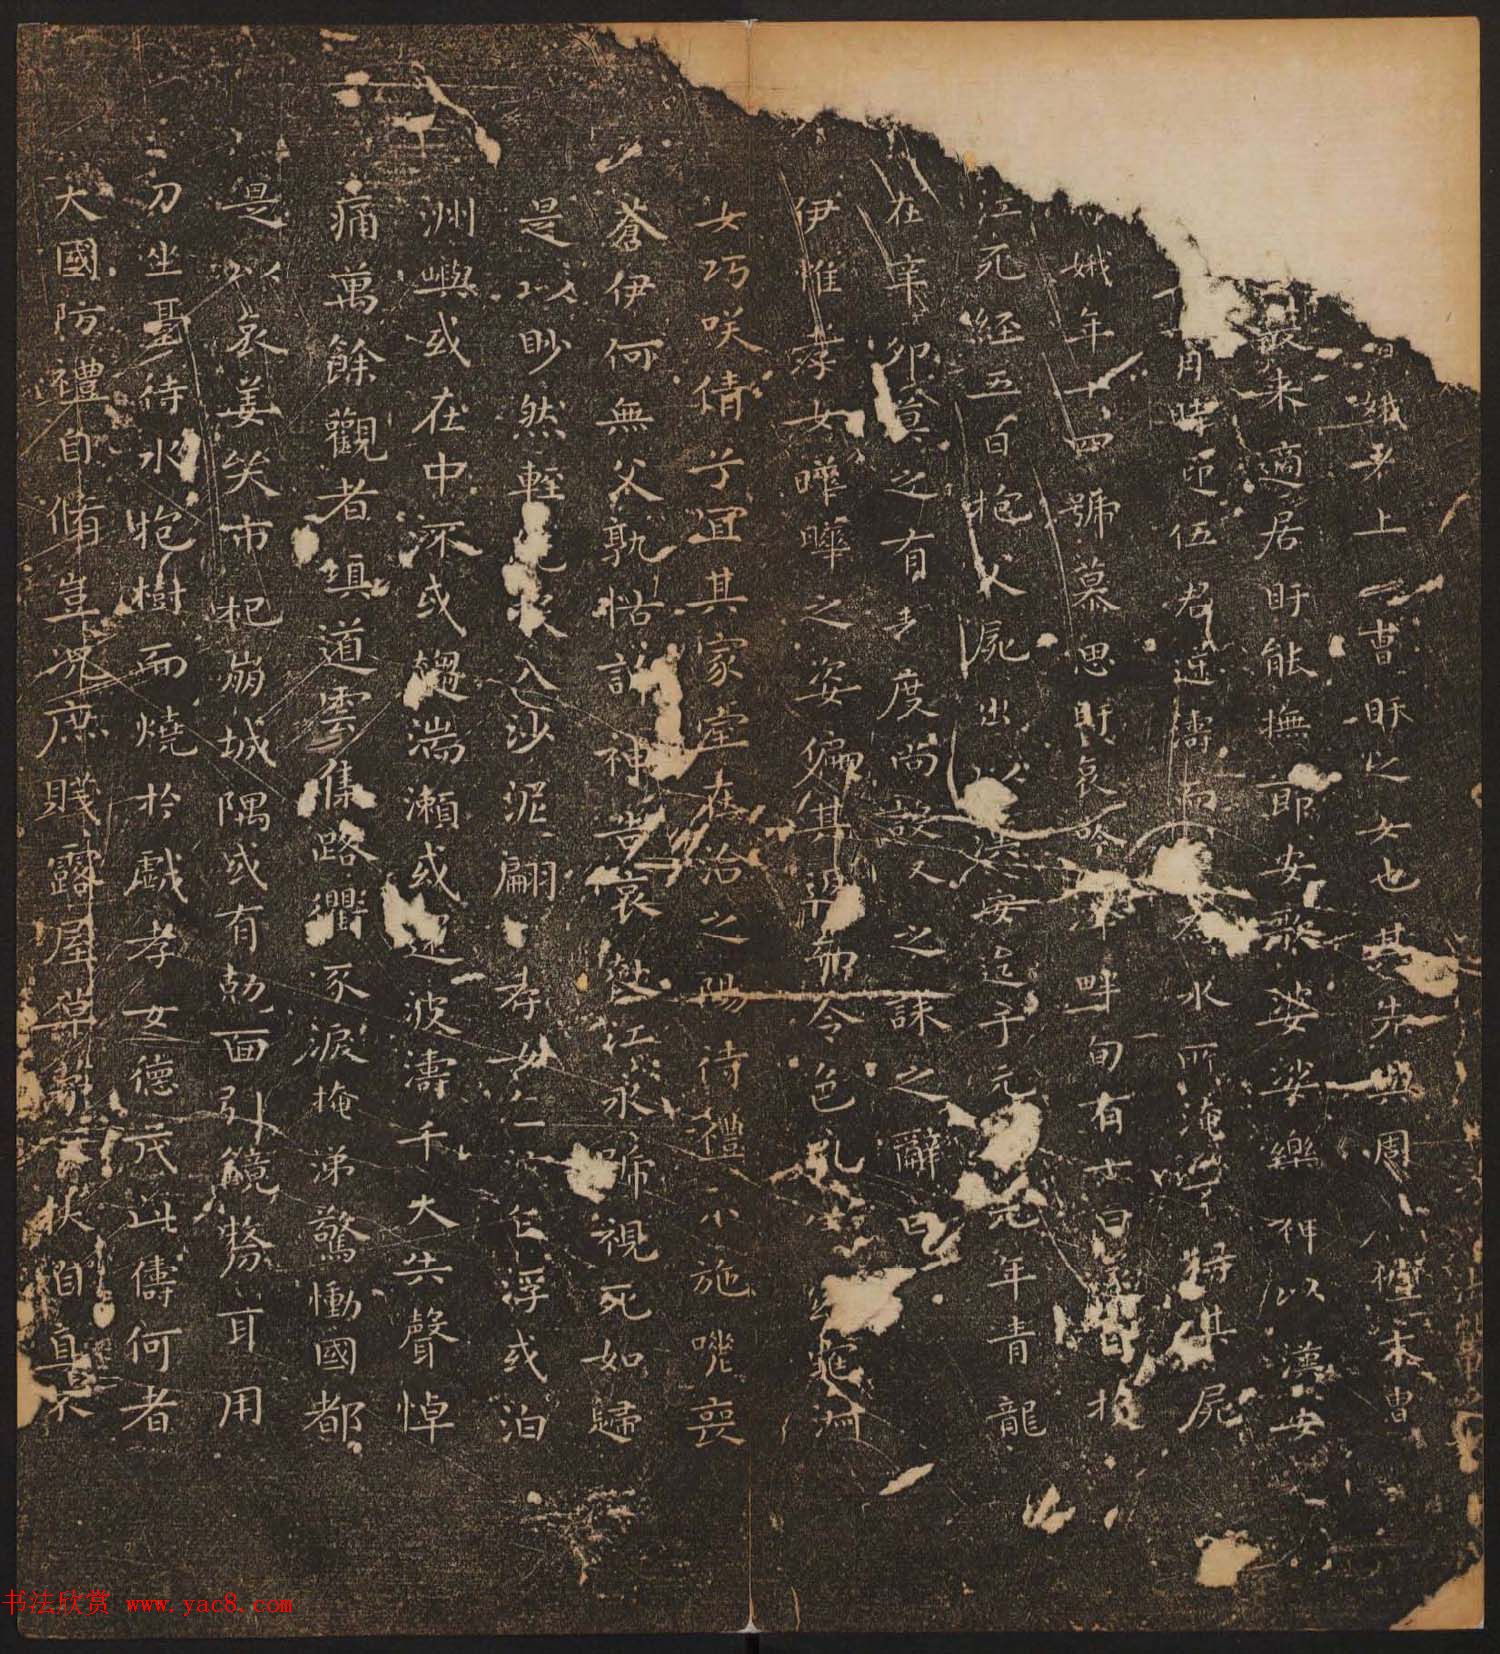 娥者上虞曹盱之女也其先與周同祖末胄
景來適居盱能撫節安歌婆娑樂神以漢安
月時迎伍君逆濤而上為水所淹不得其屍
娥年十四號慕思盱哀吟澤畔旬有七日遂自投
江死經五日抱父屍出以漢安迄于元嘉元年青龍
在辛卯莫之有表度尚設之誄之辭曰
伊惟孝女曄曄之姿偏其返而令色孔儀窈窕淑
女巧咲倩兮宜其家室在洽之陽待禮未施嗟喪
蒼伊何無父孰怙訴神告哀赴江永號視死如歸
是以眇然輕絕投入沙泥翩翩孝女乍沉乍浮或泊
洲嶼或在中流或趨湍瀨或還波濤千夫失聲悼
痛萬餘觀者填道雲集路衢泳淚掩涕驚慟國都
是以哀姜哭市杞崩城隅或有剋面引鏡剺耳用
刀坐臺待水抱樹而燒於戲孝女德茂此儔何者
大國防禮自脩豈況庶賤露屋草茅不扶自直不
书法欣赏 www.yac8.com